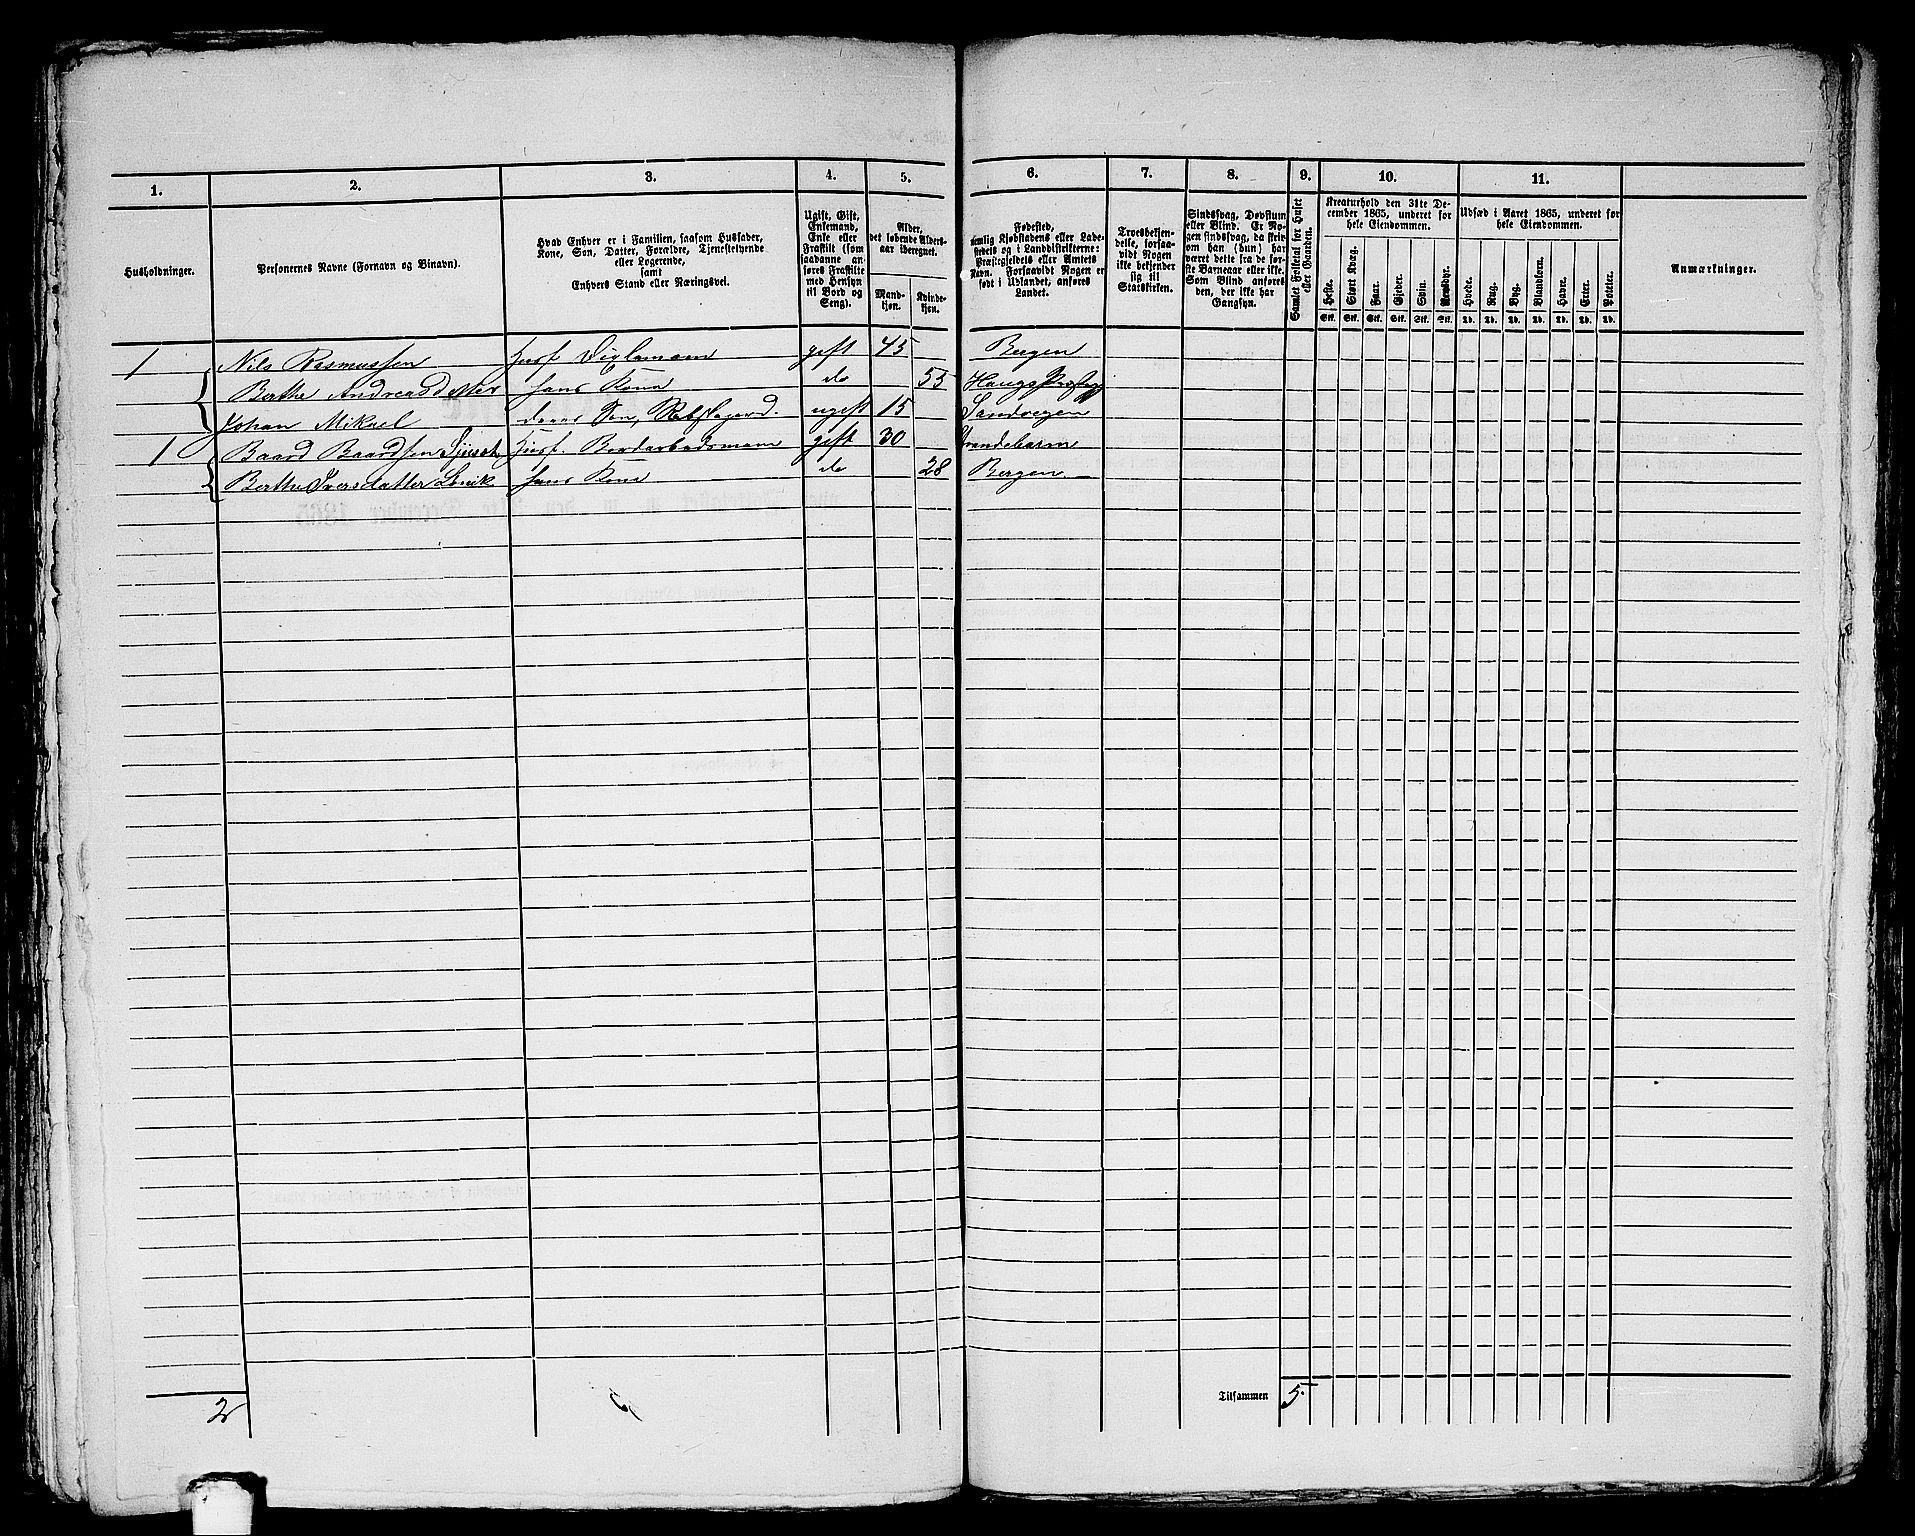 1. 2. 3. 4. 5. 6. 7. 8. 9. 10. 11.
Husholdninger.
Personernes Navne (Fornavn og Binavn).
Hvad Enhver er i Familien, saasom Husfader,
Kone, Søn, Datter, Forældre, Tjenestetyende
eller Logerende,
samt
Enhvers Stand eller Næringsvei.
Ugift, Gift,
Enkemand,
Enke eller
Fraskilt (som
saadanne an-
føres Fraskilte
med Hensyn
til Bord og
Seng).
Alder,
det løbende Alders-
aar iberegnet.
Mand-
kjøn.
Kvinde-
kjøn.
Fødested,
nemlig Kjøbstadens eller Lade-
stedets og i Landdistrikterne:
Præstegjeldets eller Amtets
Navn. Forsaavidt Nogen er
født i Udlandet, anføres
Landet.
Troesbekjen-
delse, forsaa-
vidt Nogen
ikke bekjender
sig til
Statskirken.
Sindssvag, Døvstum
eller Blind. Er No-
gen sindssvag, da skriv
om han (hun) har
været dette fra de før-
ste Barneaar eller ikke.
Som Blind anføres
den, der ikke har
Gangsyn.
Samlet Folketal for Huset
eller Gaarden.
Kreaturhold den 31te De-
cember 1865, underet for
hele Eiendommen.
Heste. Stort Kvæg. Faar. Gjeder. Svin. Rensdyr.
Stk. Stk. Stk. Stk. Stk. Stk.
Udsæd i Aaret 1865, underet for
hele Eiendommen.
Hvede. Rug. Byg. Blandkorn. Havre. Erter. Poteter.
Td. Td. Td. Td. Td. Td. Td.
Anmærkninger.
1 Nils Rasmussen Husf. gift 45 Bergen
Berthe Andreasdatter hans Kone do 55 Haugs
Johan Mikael deres Søn, ugift 15 Sandvegen
1 Baard Baardsen Husf. gift 30 Strandebarm
Berthe Iversdatter hans Kone do 28 Bergen
Tilsammen 5.
2